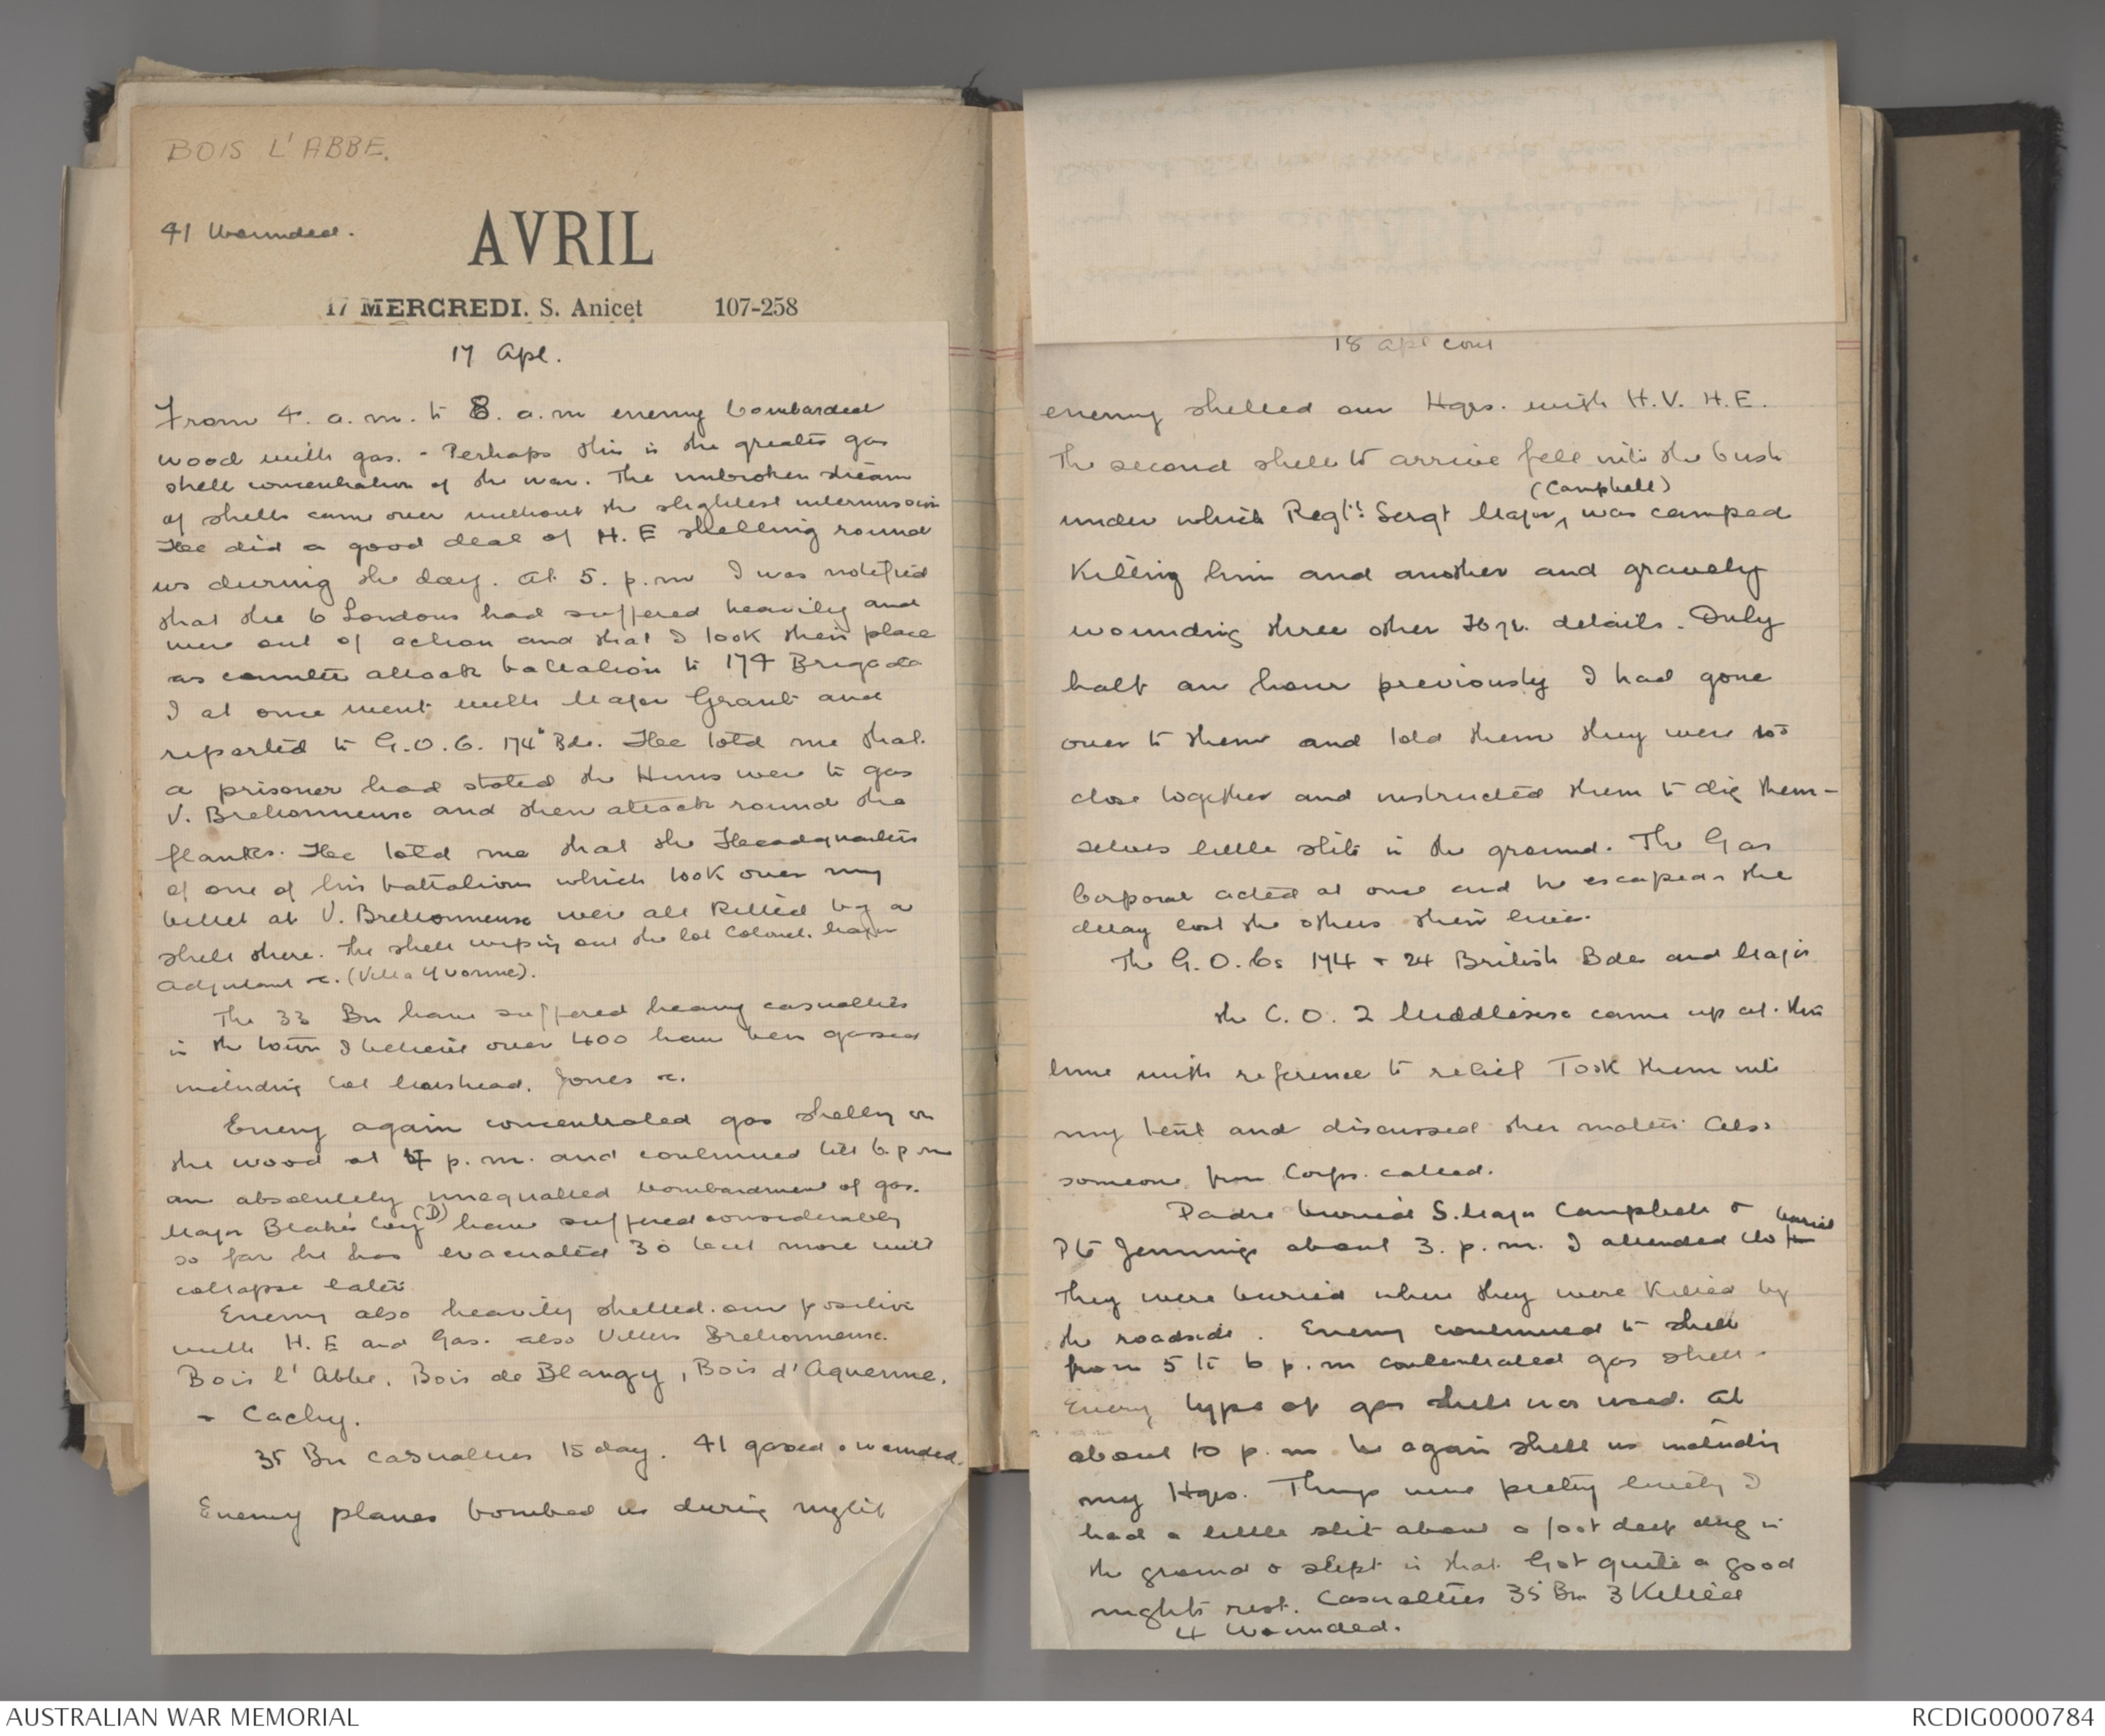 BOIS L'ABBE.
41 Wounded.
AVRIL
17 MERCREDI. S. Anicet 107-258
17 Apl.
From 4. a.m. to 8. a.m enemy bombarded
wood with gas. - Perhaps this is the greatest gas
shell concentration of the war. The unbroken stream
of shells came over without the slightest intermission
Hee did a good deal of H.E shelling round
us during the day. At 5. p.m I was notified
that the 6 Londons had suffered heavily and
were out of action and that I took their place
as counter attack battalion to 174 Brigade
I at once went with Major Grant and
reported to G.O.C. 174 Bde. Hee told me that.
a prisoner had stated the Huns were to gas
V. Bretonneux and then attack round the
flanks. Hee told me that the Headquarters
of one of his battalions which took over my
billet at V. Bretonneux were all killed by a
shell there. The shell wiping out the Lot Colonel. Major
Adjutant &c. (Villa Yvonne).
The 33 Bn have suffered heavy casualties
in the town I believe over 400 have been gassed
including Col Morshead. Jones &c.
Enemy again concentrated gas shelly on
the wood at 4 p.m. and continued till 6. p m
an absolutely unequalled bombardment of gas.
Major Blake's Coy (D) have suffered considerably
so far he has evacuated 30 but more will
collapse later
Enemy also heavily shelled our position
with H.E and Gas. also Villers Bretonneux.
Bois l'Abbe, Bois de Blangy, Bois d'Aquenne.
- Cachy.
35 Bn casualties 15 day. 41 gassed & wounded.
Enemy planes bombed us during night
18 Apl cont
enemy shelled our Hqrs. with H.V. H.E.
The second shell to arrive fell into the bush
(Campbell)
under which Regtl Sergt Major, was camped
Killing him and another and gravely
wounding three other Hqr. details. Only
half an hour previously I had gone
over to them and told them they were too
close together and instructed them to dig them-
selves little slits in the ground. The Gas
Corporal acted at once and he escaped - the
delay cost the others their lives.
The G.O.Cs 174 + 24 British Bdes and Major
the C.O. 2 Middlesex came up at. this
time with reference to relief Took them into
my tent and discussed the matter Also
someone from Corps. called.
Padre buried S.Major Campbell &
Pte Jennings about 3. p.m. I attended the burial
They were buried where they were Killed by
the roadside. Enemy continued to shell
from 5 to 6 p.m concentrated gas shell.
Every type of gas shell was used. At
about 10 p.m he again shell us including
my Hqrs. Things were pretty lively I
had a little slit about a foot deep dug in
the ground & slept in that. Got quite a good
nights rest. Casualties 35 Bn 3 Killed
4 Wounded.
AUSTRALIAN WAR MEMORIAL
RCDIG0000784